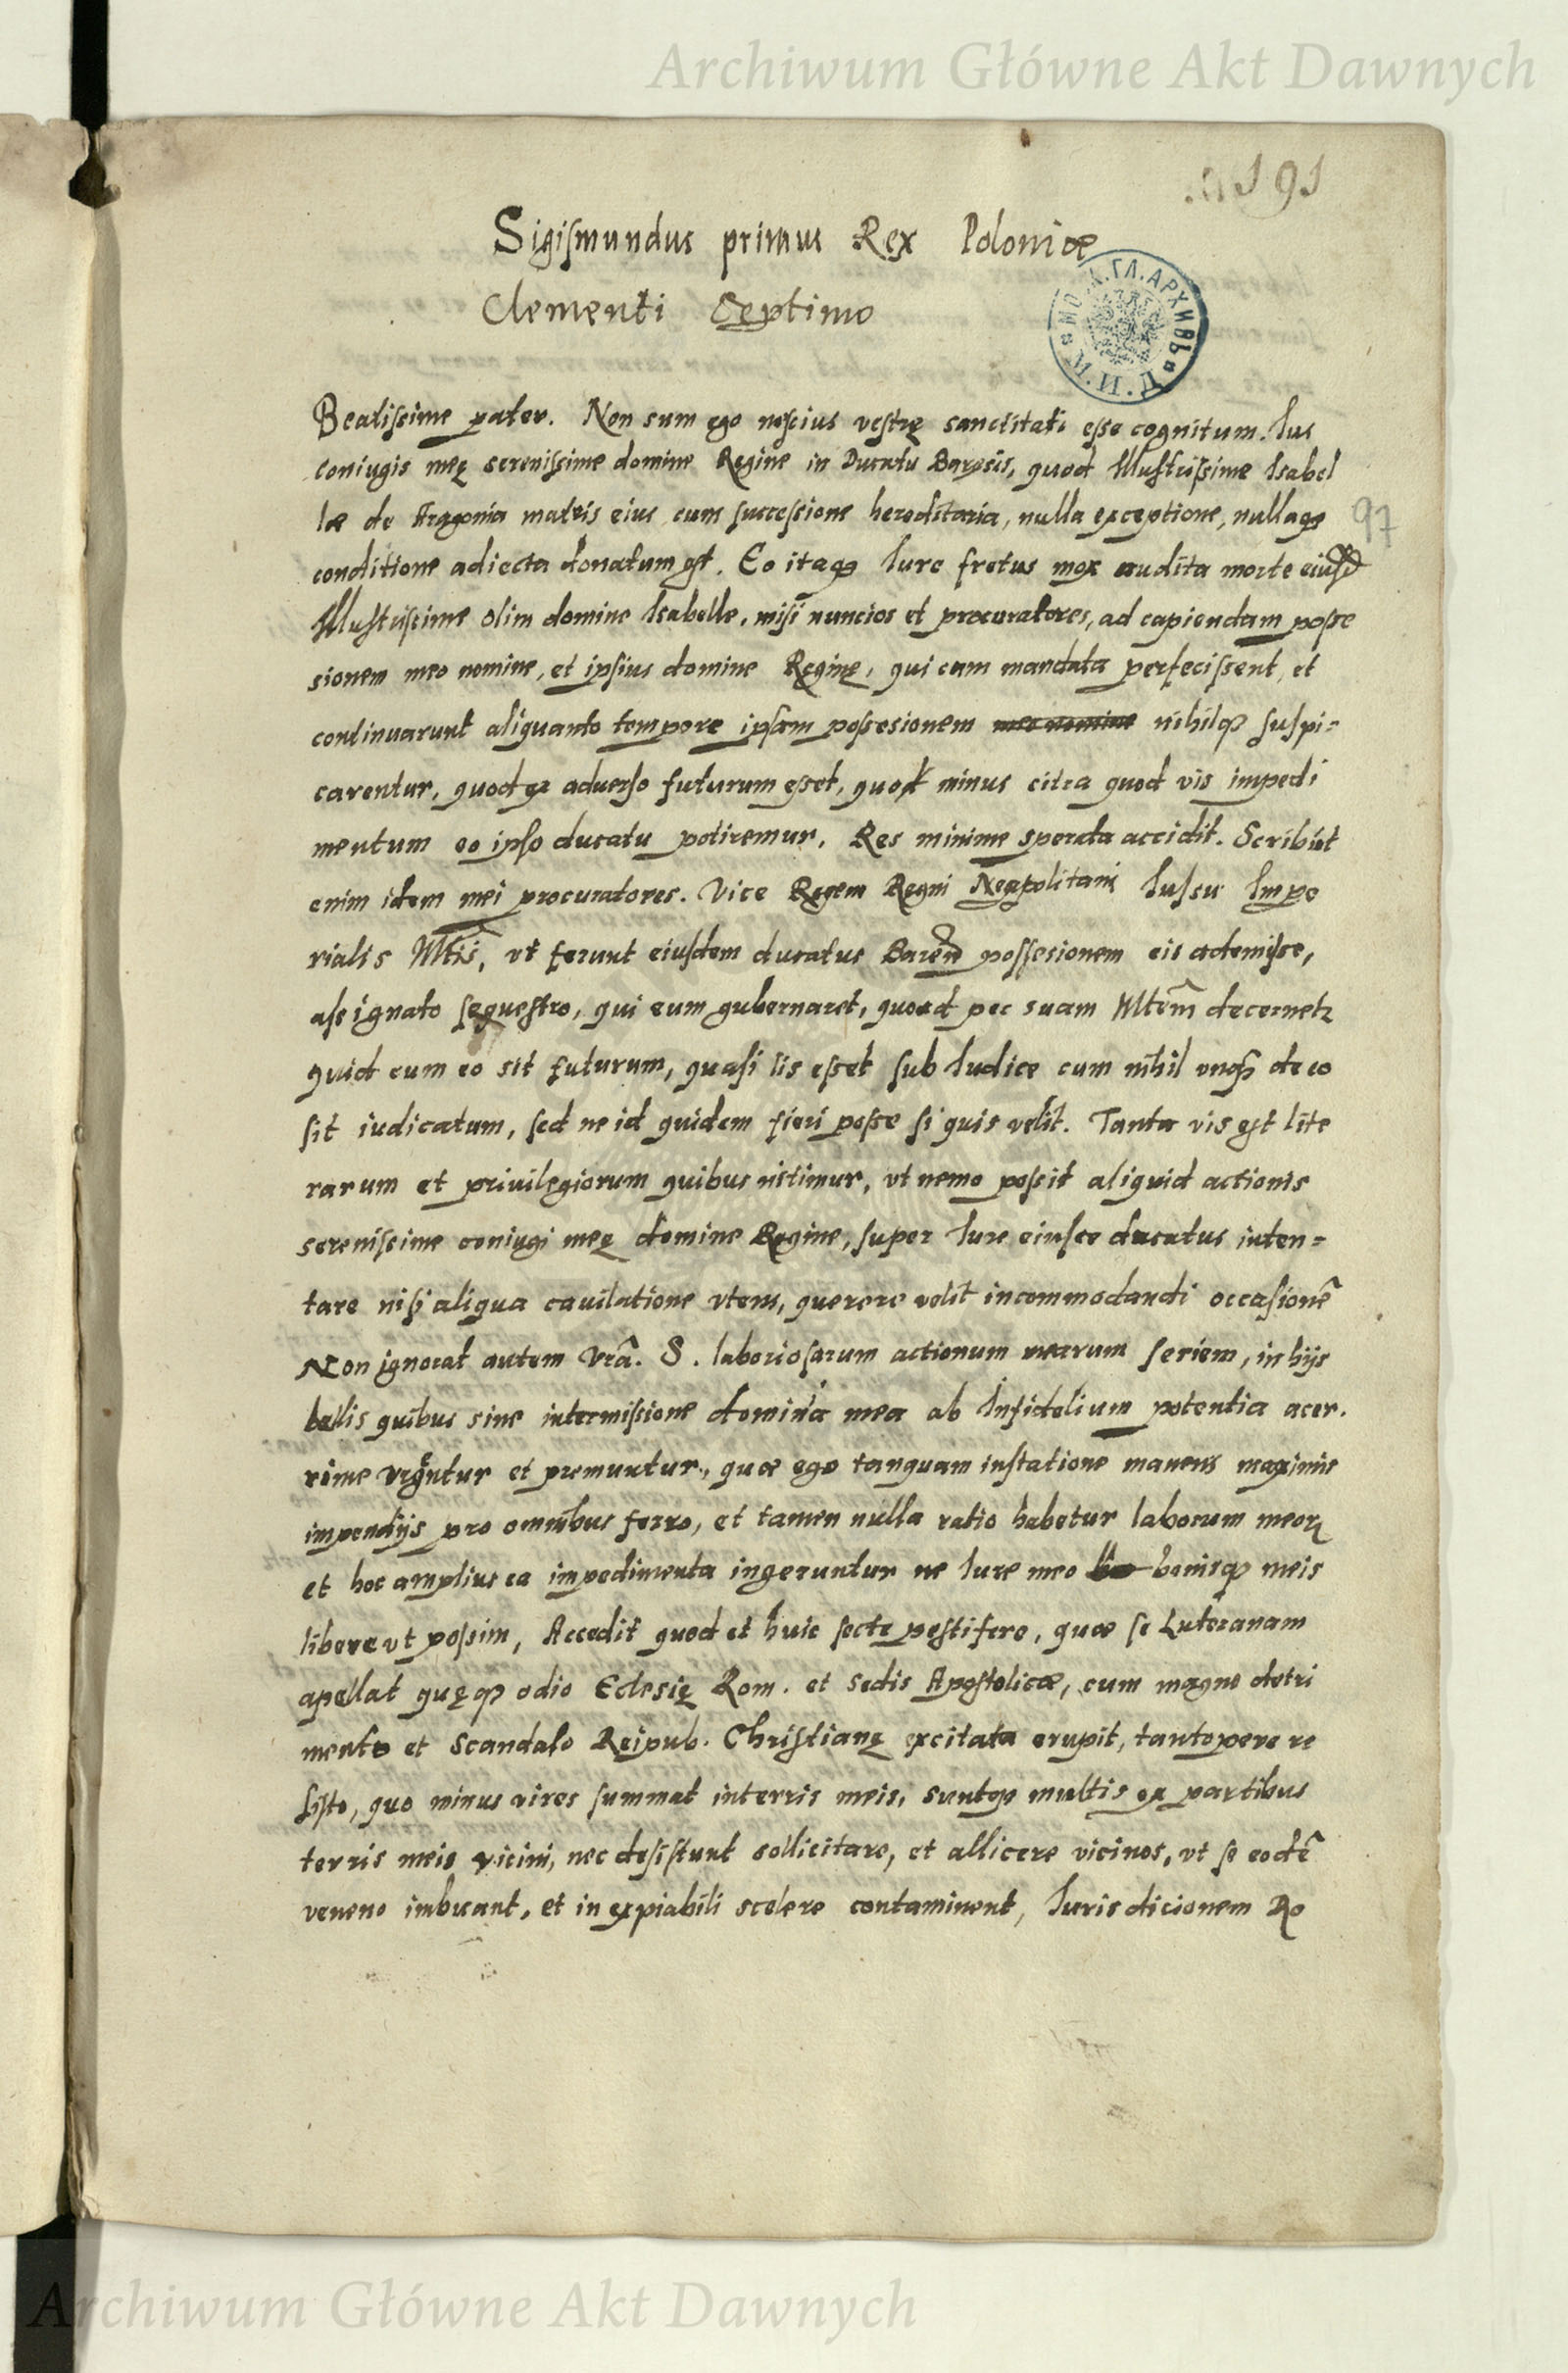 Archiwum Główne Akt Dawnych
191
Sigismundus primus Rex Poloniæ
Clementi Septimo
Beatissime pater. Non sum ego nescius vestrę sanctitati esse cognitum. Ius
coniugis meę serenissime domine Regine in Ducatu Baresis, quod Illustrissime Isabel
læ de Aragonia matris eius cum successione hereditaria, nulla exceptione, nullaqȝ
97
conditione adiecta donatum est. Eo itaqȝ Iure fretus mox audita morte eiusd
Illustrissime olim domine Isabelle, misi nuncios et procuratores, ad capiendam posse
sionem meo nomine, et ipsius domine Reginę, qui cum mandata perfecissent, et
continuarunt aliquanto tempore ipsam possesionem meo nomine nihilqȝ suspi=
carentur, quod ex aduerso futurum esset, quod minus citra quod vis impedi
mentum eo ipso ducatu potiremur. Res minime sperata accidit. Scribūt
enim idem mei procuratores. Vice Regem Regni Neapolitani Iussu Impe
rialis Mtis, vt ferunt eiusdem ducatus Baren possesionem eis ademisse,
assignato sequestro, qui eum gubernaret, quoad per suam Mtem̄ decernetr
quid cum eo sit futurum, quasi lis esset sub Iudice cum nihil vnqȝ de eo
sit iudicatum, sed ne id quidem fieri posse si quis velit. Tanta vis est lite
rarum et priuilegiorum quibus nitimur, vt nemo possit aliquid actionis
serenissime coniugi meę domine Regine, super Iure eiusce ducatus inten=
tare nisi aliqua cauilatione vtens, querere velit incommodandi occasionē
Non ignorat autem Vrā. S. laboriosarum actionum mearum seriem, in hijs
bellis quibus sine intermissione dominia mea ab Infidelium potentia acer.
rime vrgentur et premuntur, quæ ego tanquam in statione manens maximis
impendijs pro omnibus ferro, et tamen nulla ratio habetur laborum meorȝ
et hoc amplius ea impedimenta ingeruntur ne Iure meo bonisqȝ meis
libere vt possim, Accedit quod et huic secte pestifere, quæ se Luteranam
apellat quęqȝ odio Eclesię Rom. et sedis Apostolicæ, cum magno detri
mento et scandalo Reipub. Christianę excitata erupit, tantopere re
sisto, quo minus vires summat in terris meis, suntqȝ multis ex partibus
terris meis vicini, nec desistunt sollicitare, et allicere vicinos, vt se eodē
veneno imbuant, et in expiabili scelere contaminent, Iurisdicionem Ro
Archiwum Główne Akt Dawnych